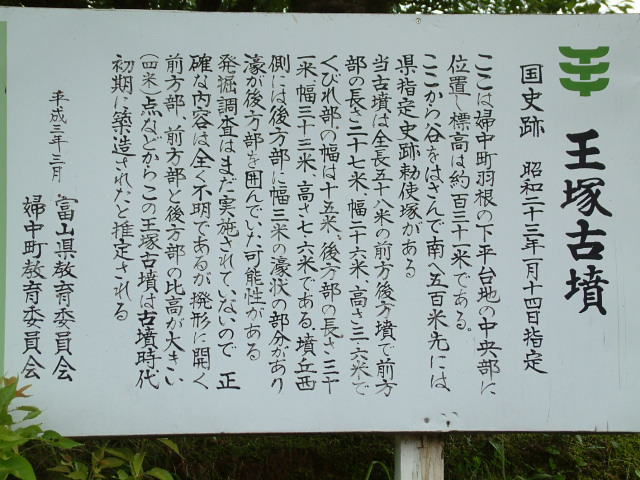 王塚古墳
国史跡 昭和二十三年一月十四日指定
ここは婦中町羽根の下平台地の中央部に
位置し標高は約百三十一米である。
ここから谷をはさんで南へ五百米先には
県指定史跡勅使塚がある
当古墳は全長五十八米の前方後方墳で前方
部の長さ二十七米、幅二十六米、高さ三・六米で
くびれ部の幅は十五米、後方部の長さ三十
一米、幅三十三米、高さ七・六米である。墳丘西
側には後方部に幅三米の濠状の部分があり
濠が後方部を囲んでいた可能性がある
発掘調査はまだ実施されていないので正
確な内容は全く不明であるが撥形に開く
前方部、前方部と後方部の比高が大きい
(四米)点などからこの王塚古墳は古墳時代
初期に築造されたと推定される
平成三年三月
富山県教育委員会
婦中町教育委員会